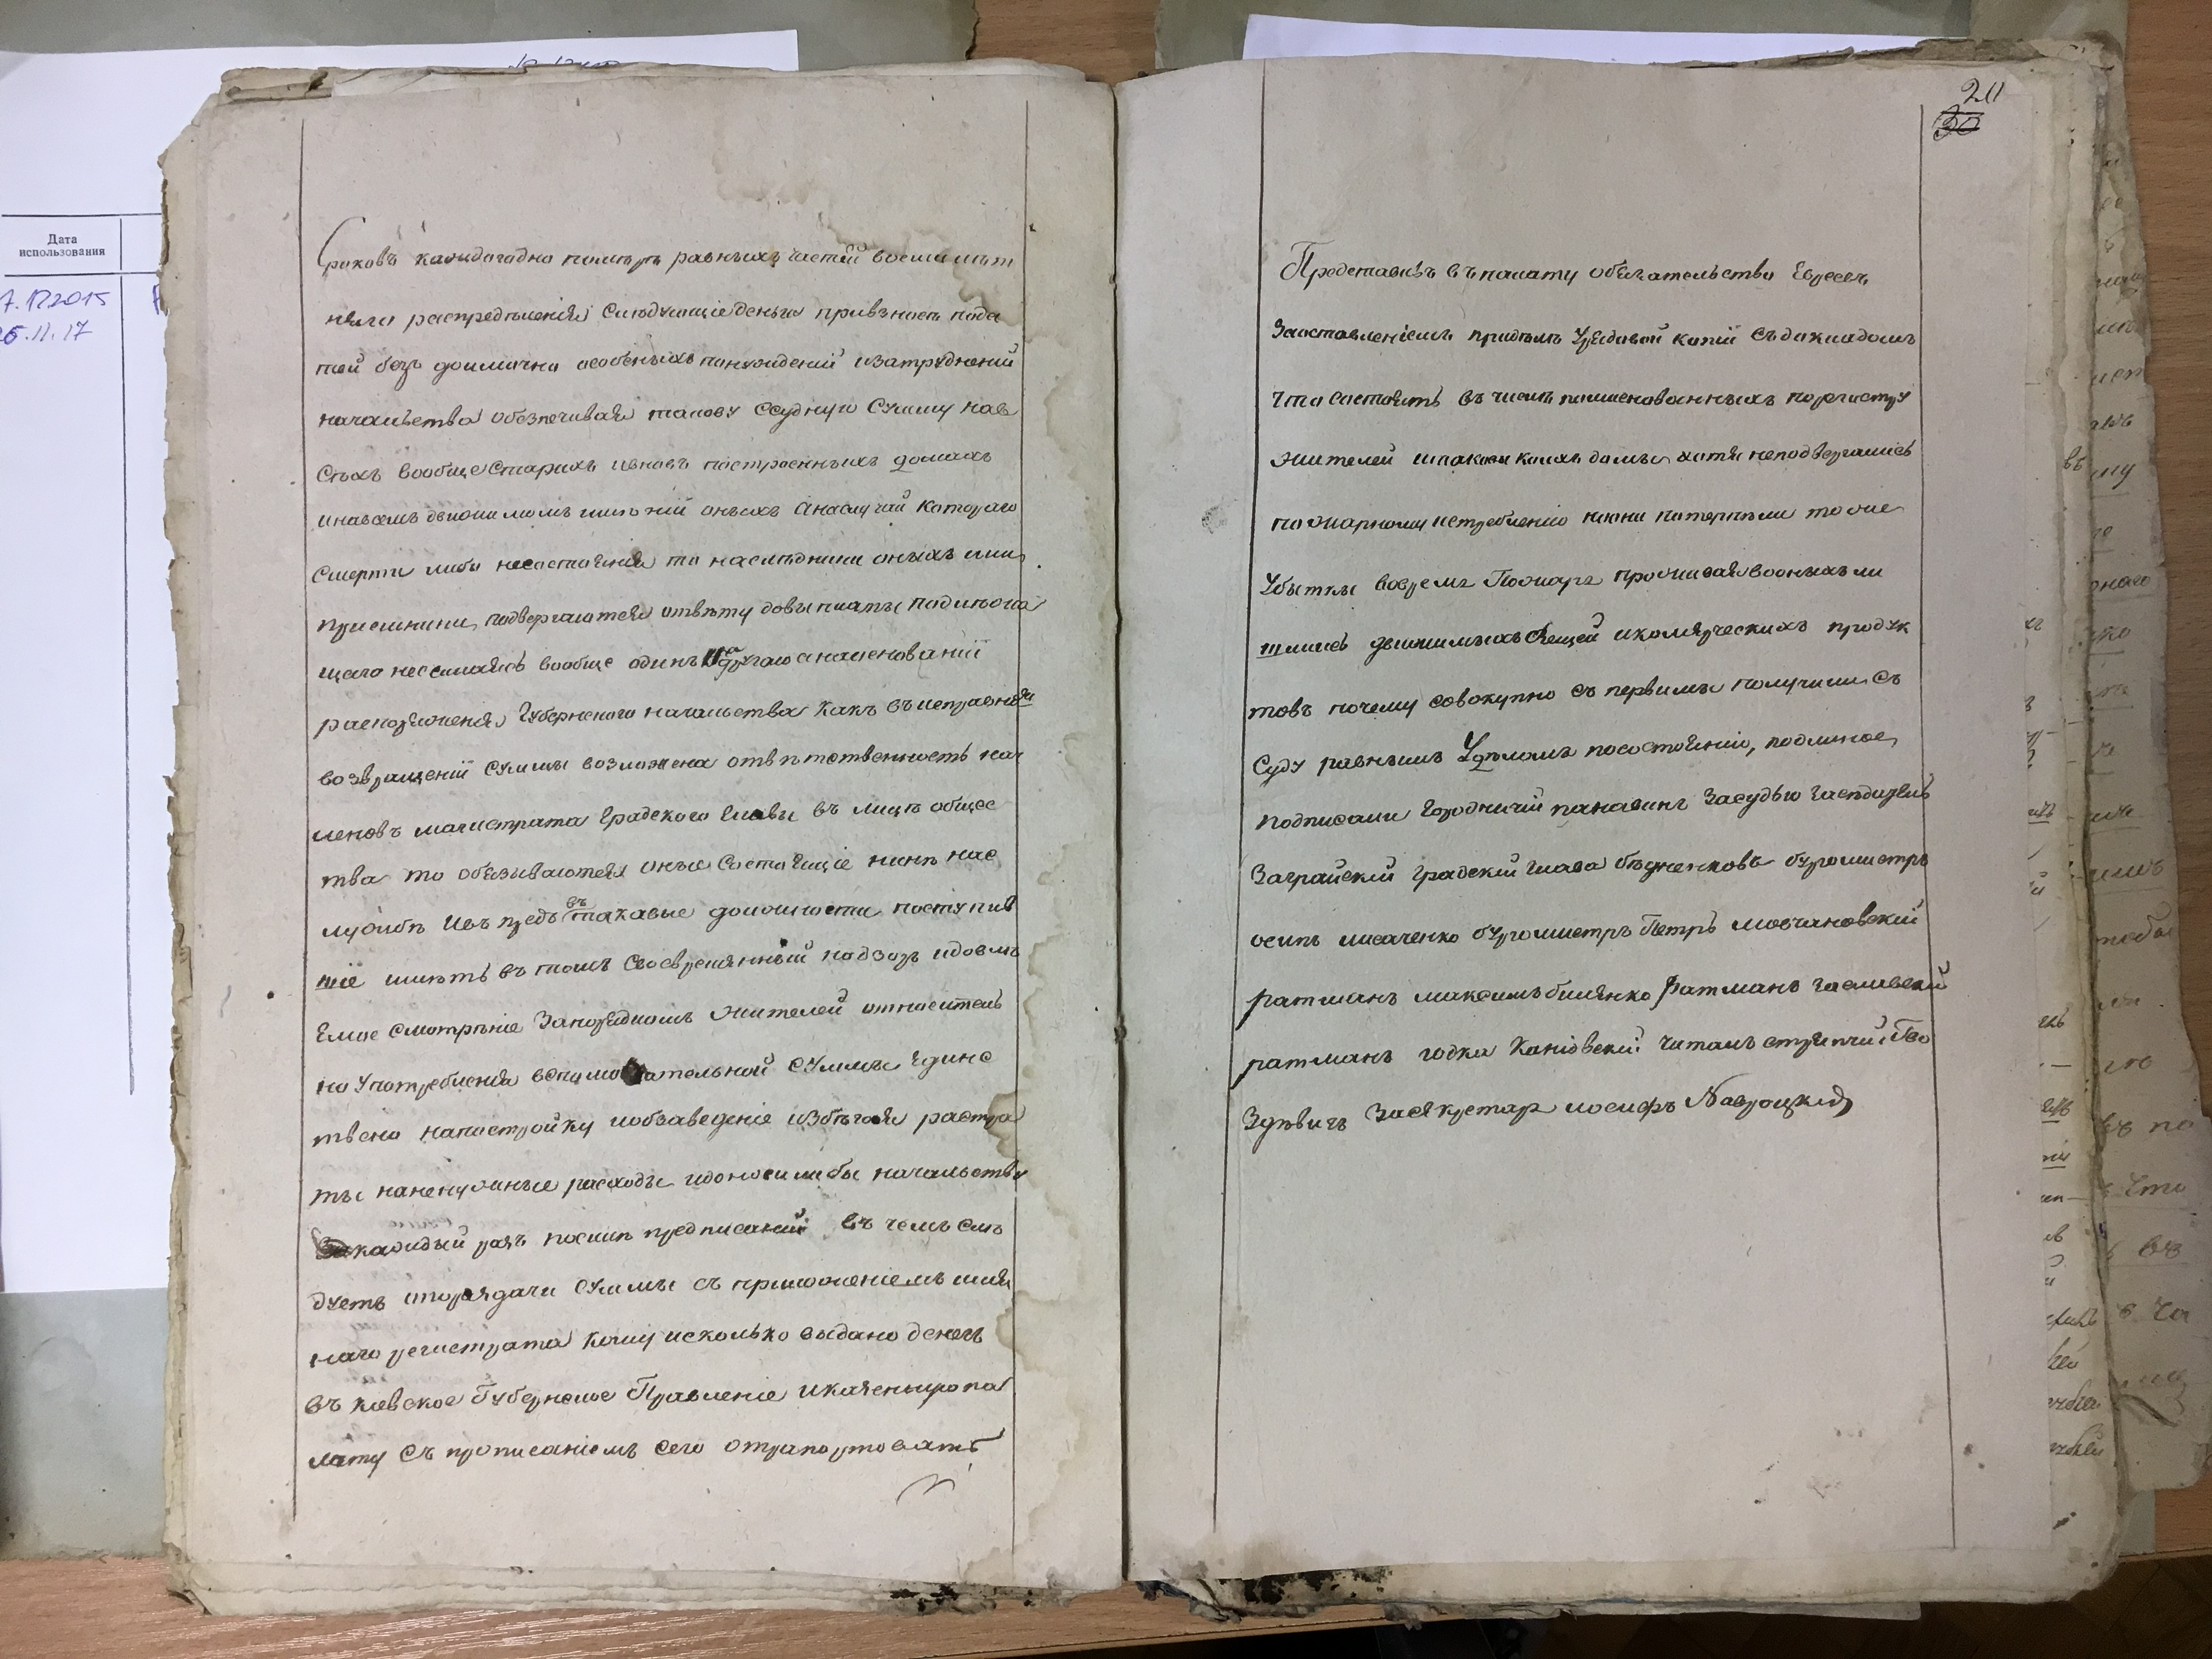 Дата
использования
26.11.17
сроковъ каждогодно помѣрѣ равныхъ частей восмилѣт
няго распредѣленія слѣдующіе деньги
тей безъ доимочно особеныхъ понужденій изатрудненій
начальства обезпечивая такову ссудную сумму нав
сѣхъ вообще старихъ ивновъ построенныхъ домахъ
инавсемъ движимомъ имѣніи оныхъ анаслучай котораго
смерти либо несостоянія то наслѣдники оныхъ или
преемники подвергаются отвѣту довыплаты подлежа
щаго нессылаясь вообще одинъ на другаго
распоряженія губернского начальства какъ въ исправной
возвращеніи суммы возложена отвѣтственность начл
меновъ магистрата градского главы въ лицѣ общес
тва то обязываются оные состоящіе нинѣ нас
лужбѣ ивъ предъ въ таковые должности поступив
шіе имѣть въ томъ своевремянный надзоръ идолж
емое смотрѣніе Запорядкомъ жителей относитель
но употребленія вспомогательной суммы единс
твено напостройку иобзаведеніе избѣгая растра
ты наненужные расходы идоносилибы начальству
Закаждый разъ послѣ предписаній въ чемъ слѣ
дуетъ ипораздачи суммы съ приложеніемъ имян
наго регистрата кому исколько выдано денегъ
въ киевское Губернское Правленіе иказеннуюпа
лату съ прописаніемъ сего отрапортовать
20
30
Представивъ въ палату обязательство Евреевъ
Заоставленіемъ придѣлѣ урядовой копіи съдокладомъ
что состоятъ въ числѣ поименованныхъ порегистру
жителей итаковы коихъ домы хотя неподвергались
пожарному истребленію нюни потерпѣли тоже
Убытки вовремя Пожара проживая воныхъ ли
шились движимыхъ вещей икомярческихъ продук
товъ почему совокупно съ первыми получили сс
суду равнымъ Удѣломъ посостоянію, подлиное
подписали городничій Засудью
Заграйскій градскій глава бѣдненковъ бурмистръ
осипъ лисаченко бурмистръ Петръ мовчановскій
ратманъ максимъ билянко Ратманъ
ратманъ годка Каніовскій читалъ стряпчій Гво
здѣвичъ Засякретар иосифъ Навроцкій